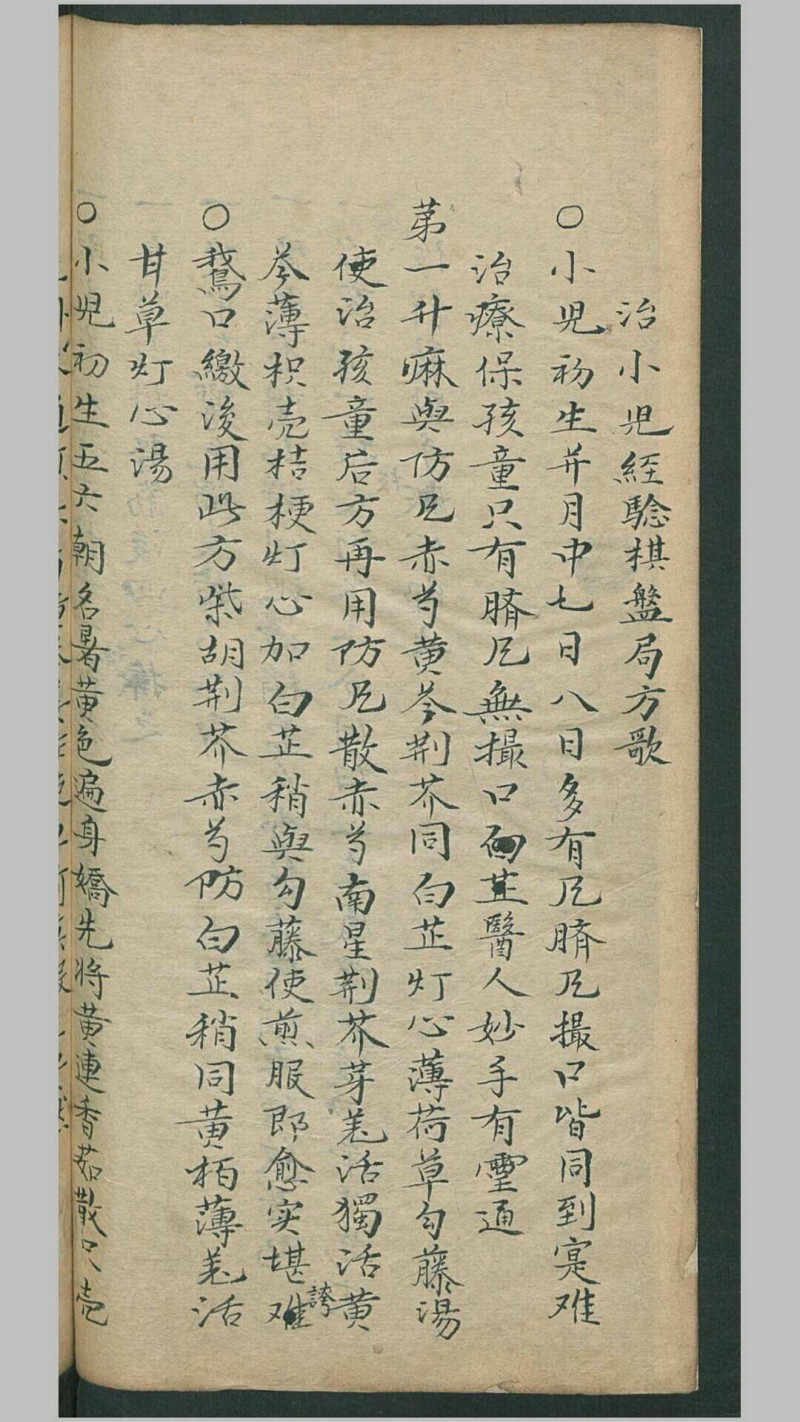 治小児経騐棋盤局方歌
○小児初生并月中七日八日多有風臍風撮口皆同到寔难
治療保孩童只有臍風無撮口白芷醫人妙手有霊通
苐一升麻與防風赤芍黄芩荆芥同白芷灯心薄荷草勾藤湯
使治孩童后方再用防風散赤芍南星荆芥芽羌活獨活黄
芩薄枳壳桔梗灯心加白芷稍與勾藤使煎服即愈实堪誇
○鵞口繳後用此方柴胡荆芥赤芍防白芷稍同黄栢薄羌活
甘草灯心湯
○小児初生五六朝名暑黄色遍身嬌先將黄連香茹散只壳